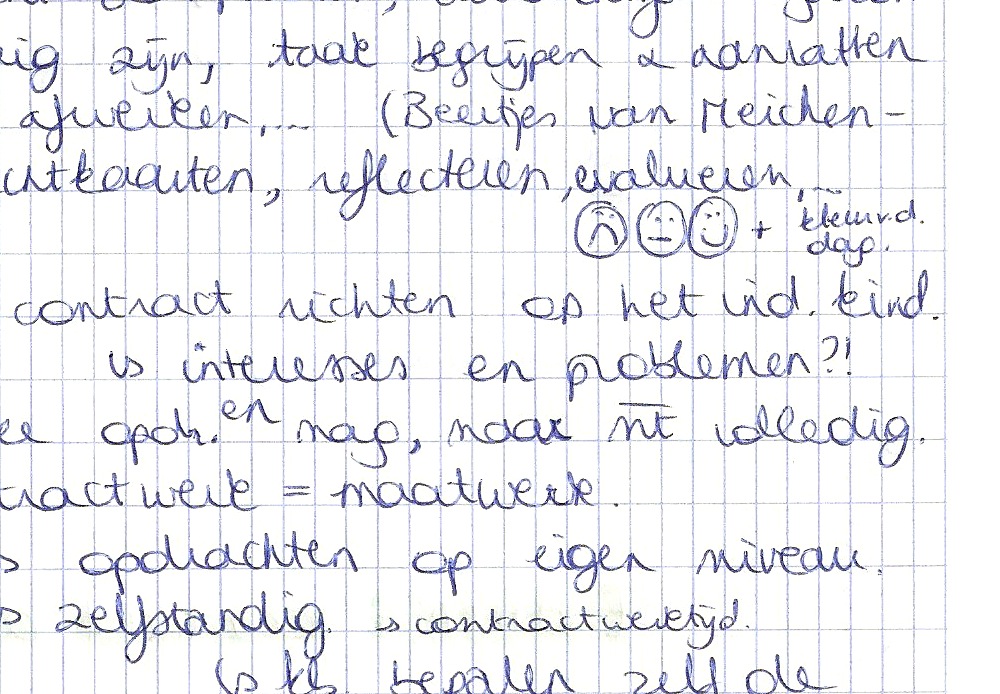 uig zijn, taak begrijpen & aanvatten
afwerken,... (Beertjes van Meichen-
uitkaarten, reflecteren, evalueren,...
+ kleur v.d.
dag.
contract richten op het ind. kind.
↳ interesses en problemen?!
opdr.en mag, maar nt volledig.
ractwerk = maatwerk.
> opdrachten op eigen niveau.
> zelfstandig ↳ contractwerktijd.
↳ kls bepalen zelf de